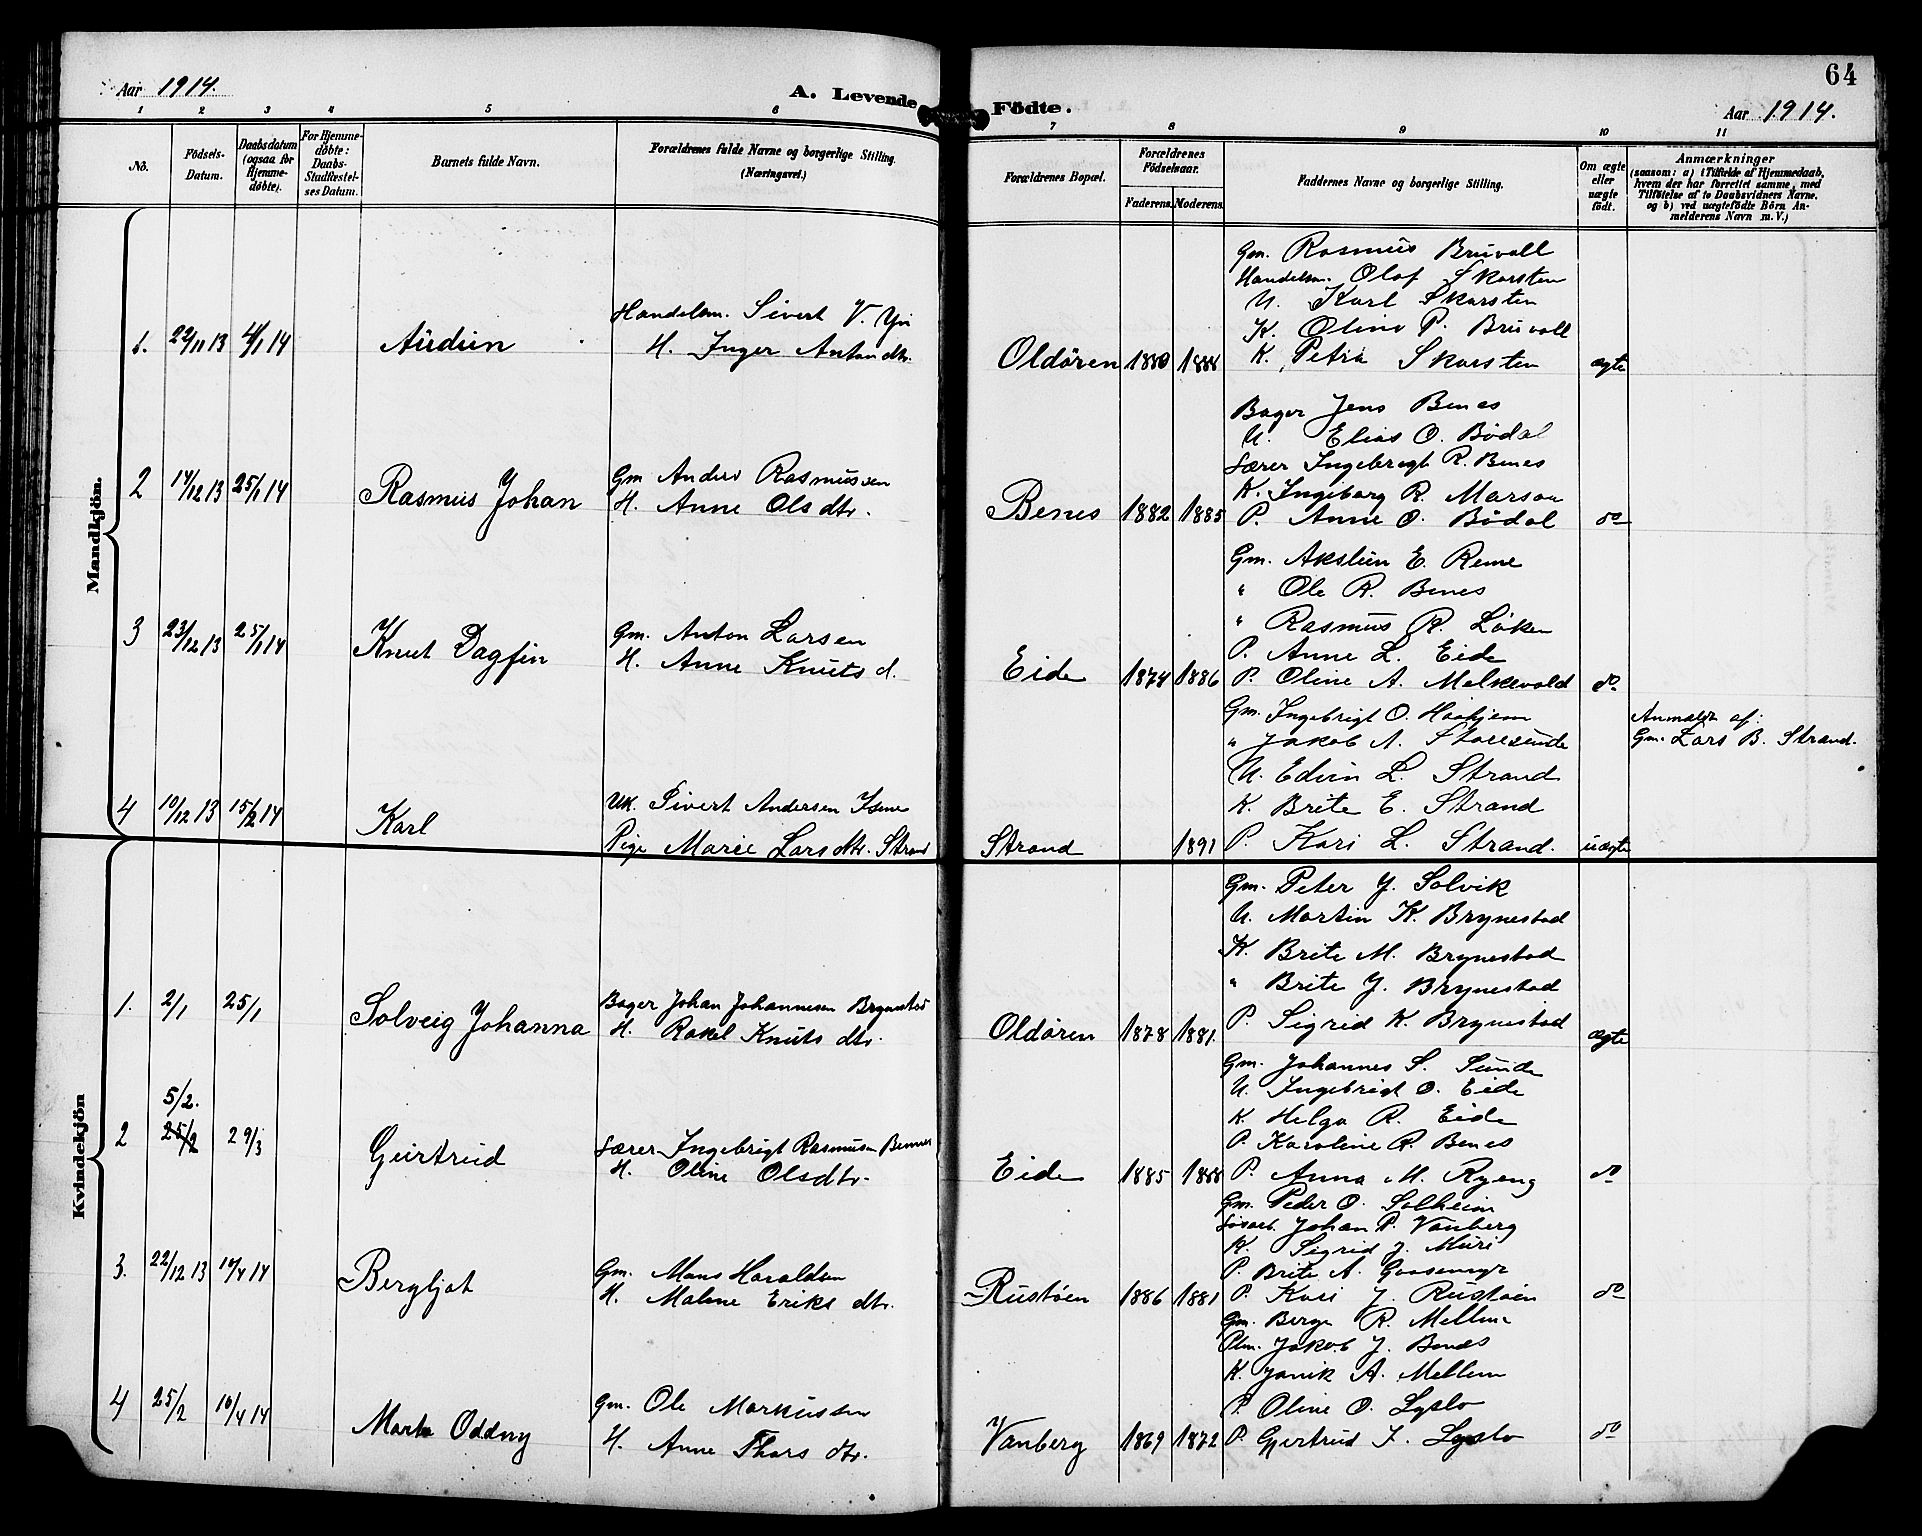 64
Aar 1914.
A. Levende Födte.
Aar 1914.
1 2 3 4 5 6 7 8 9 10 11
No.
Födsels-Datum.
Daabsdatum (ogsaa for Hjemme-døbte).
For Hjemme-døbte: Daabs-Stadfæstel-ses Datum.
Barnets fulde Navn.
Forældrenes fulde Navne og borgerlige Stilling. (Næringsvei.)
Forældrenes Bopæl.
Forældrenes Födselsaar.
Faderens. Moderens.
Faddernes Navne og borgerlige Stilling.
Om ægte eller uægte födt.
Anmærkninger
(saasom: a) i Tilfælde af Hjemmedaab, hvem der har forrettet samme, med Tilföielse af to Daabsvidners Navne, og b) ved uægtefödte Börn An-melderens Navn m. V.)
Mandkjön.
Gm. Rasmus Bruvoll
Handelsm. Olaf Skarsten
U. Karl Skarsten
K. Oline P. Bruvoll
1. 22/11 13 4/1 14 Audun
Handelsm. Sivert V. Yri
H. Inger Antondtr.
Oldören 1880 1888 K. Petra Skarsten ægte
Bager Jens Benes
U. Elias O. Bödal
Lærer Ingebrigt R. Benes
K. Ingeborg R. Marsaa
2 14/12 13 25/1 14 Rasmus Johan
Gm Anders Rasmussen
H. Anne Olsdtr.
Benes 1882 1885 P. Anne O. Bödal do
Gm. Akslein E. Reme
" Ole R. Benes
" Rasmus R. Löken
P. Anne L. Eide
3 23/12 13 25/1 14 Knut Dagfin
Gm. Anton Larsen
H. Anne Knuts d.
Eide 1874 1886 P. Oline A. Melkevold do
Gm. Ingebrigt O. Haahjem
" Jakob A. Storesunde
U. Edvin L. Strand
K. Brite E. Strand
Anmeldt af:
Gm. Lars B. Strand.
4 10/12 13 15/2 14 Karl
UK. Sivert Andersen Isene
Pige Marie Larsdtr. Strand
Strand 1891 P. Kari L. Strand. uægte
Kvindekjön
Gm. Peter J. Solvik
U. Martin K. Brynestad
K. Brite M. Brynestad
" Brite J. Brynestad
1. 2/1 25/1 Solveig Johanna
Bager Johan Johannesen Brynestad
H. Rakel Knuts dtr.
Oldören 1878 1881. P. Sigrid K. Brynestad ægte
Gm. Johannes S. Sunde
U. Ingebrigt O. Eide
K. Helga R. Eide
P. Karoline R. Benes
5/2.
2 25/2 29/3 Gjertrud
Lærer Ingebrigt Rasmusen Bennes
H. Oline Olsdtr.
Eide 1885 1888 P. Anna M. Ryeng do
Gm. Peder O. Solheim
Johan P. Vanberg
K. Sigrid J. Muri
P. Brite A. Gaasemyr
3. 22/12 13 14/4 14 Bergljot
Gm. Mons Haraldsen
H. Malene Eriks dtr.
Rustöen 1886 1881 P. Kari J. Rustöen do
Gm. Berge R. Mellem
Plm. Jakob J. Bends
K. Janik A. Mellem
P. Oline O. Lyslo
4 25/2 10/4 14 Marta Oddny
Gm. Ole Markussen
H. Anne Thors dtr.
Vanberg 1869 1872 P. Gjertrud I. Lyslo do